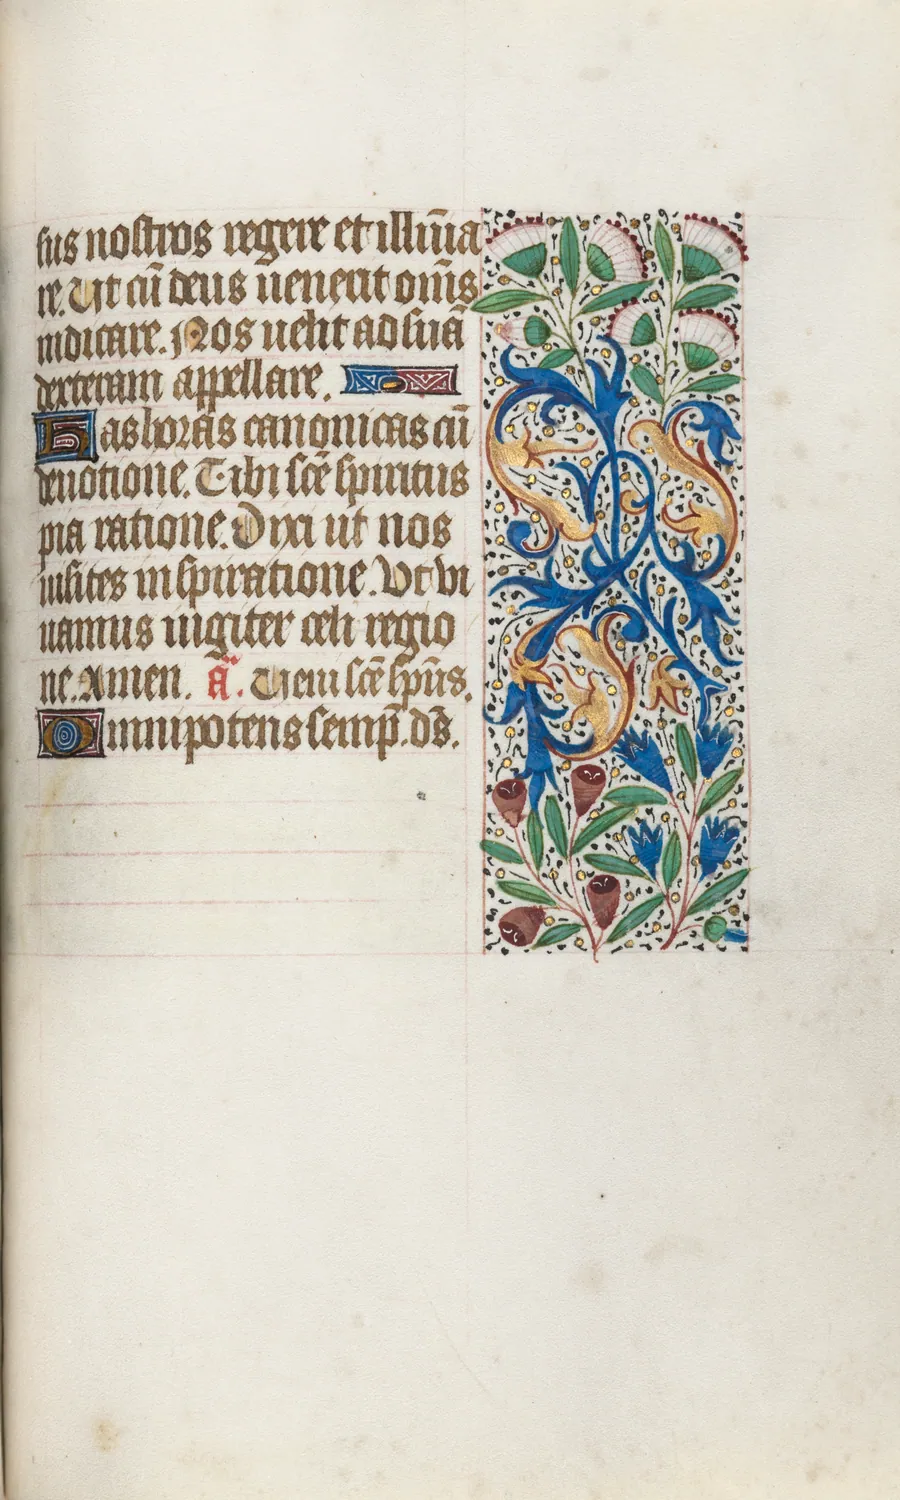 sus nostros regere et illūīa
re. Ut cū deus uenerit om̄s
iudicare. Nos uelit ad suā
dexteram appellare.
Has horas canonicas cū
deuotione. Tibi scē spiritus
pia ratione. Dixi ut nos
uisites inspiratione. Ut vi
uamus iugiter celi regio
ne. Amen. a͞. Ueni scē sp̄us.
Omnipotens semp̄. ds̄.